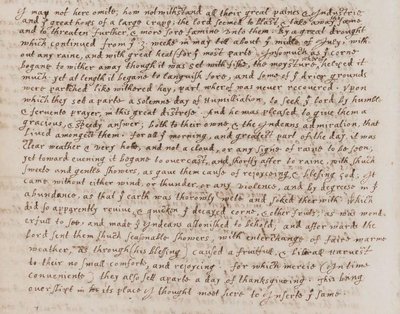 I may not here omite, how notwithstand all their great paines & Industrie
and ye great hops of a large cropp, the Lord seemed to blast, & take away the same
and to threaten further, & more sore famine unto them. by a great drought
which continued from ye 3. weeke in may, till about ye midle of July, with-
out any raine, and with great heat (for ye most parte) Insomuch as ye corne
begane to wither away though it was set with fishe, the moysture wherof helped it
much. yet at length it begane to languish sore, and some of ye drier grounds
were partched like withered hay, part wherof was never recovered. Upon
which they sett a parte a solemne day of Humilliation, to seek ye Lord by humble
& fervente prayer, in this great distrese. And he was pleased to give them a
gracious, & speedy answer, both to their owne, & the Indeans admiration, that
lived amongest them. for all ye morning, and greatest part of the day, it was
clear weather & very hotte, and not a cloud, or any signe of raine to be seen,
yet toward evening it begane to overcast, and shortly after to raine, with shuch
sweete and gentle showers, as gave them cause of rejoyceing, & blesing God. It
came without either wind, or thunder, or any violence, and by degreese in yt
abundance, as that ye earth was thorowly wete and soked therwith. which
did so apparently revive, & quicken ye decayed corne, & other fruits, as was wond-
erfull to see, and made ye Indeans astonished to behold; and after wards the
Lord sent them shuch seasonable showers, with enterchange of faire warme
weather, as, through his blessing caused a fruitfull, & liberal harvest
to their no small comforte, and rejoycing. for which mercie (in time
conveniente) they also sett aparte a day of thanksgiveing. This being
overslipt in its place I thought meet here to inserte ye same.